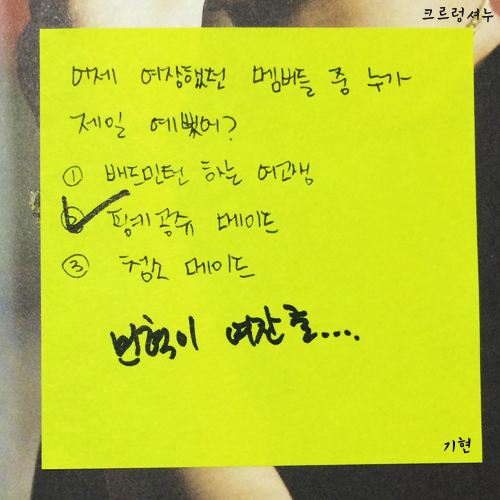 크르렁셔누
어제 여장했던 멤버들 중 누가
제일 예뻤어?
① 배드민턴 하는 여고생
② 핑키공쥬 메이드
③ 청소 메이드
민혁이 여잔 줄....
기현